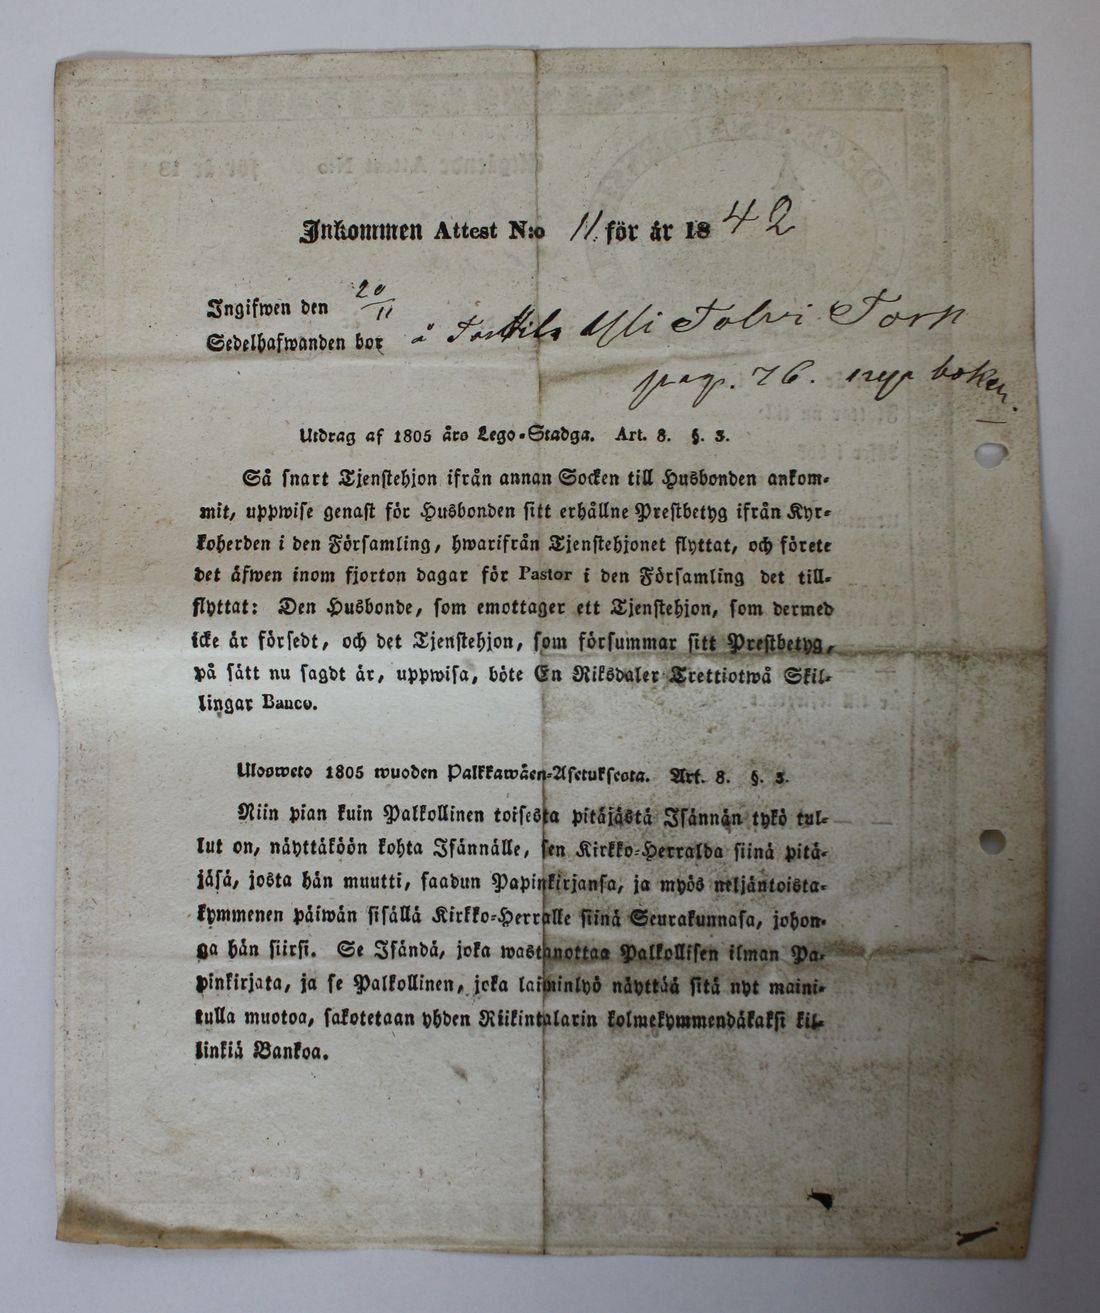 Inkommen Attest N:o 11. för år 1842
Ingifwen den 20/11
Sedelhafwanden bor å Yli Tolvi Torp
pag. 76. nya boken.
Utdrag af 1805 års Lego-Stadga. Art. 8. §. 3.
Så snart Tjenstehjon ifrån annan Socken till Husbonden ankom-
mit, uppwise genast för Husbonden sitt erhållne Prestbetyg ifrån Kyr-
koherden i den Församling, hwarifrån Tjenstehjonet flyttat, och förete
det äfwen inom fjorton dagar för Pastor i den Församling det till-
flyttat: Den Husbonde, som emottager ett Tjenstehjon, som dermed
icke är försedt, och det Tjenstehjon, som försummar sitt Prestbetyg,
på sätt nu sagdt är, uppwisa, böte En Riksdaler Trettiotwå Skil-
lingar Banco.
Ulosweto 1805 wuoden Palkkawäen-Asetuksesta. Art. 8. §. 3.
Niin pian kuin Palkollinen toisesta pitäjästä Isännän tykö tul-
lut on, näyttäköön kohta Isännälle, sen Kirkko-Herralda siinä pitä-
jäsä, josta hän muutti, saadun Papinkirjansa, ja myös neljäntoista-
kymmenen päiwän sisällä Kirkko-Herralle siinä Seurakunnasa, johon-
ga hän siirsi. Se Isändä, joka wastanottaa Palkollisen ilman Pa-
pinkirjata, ja se Palkollinen, joka laiminlyö näyttää sitä nyt maini-
tulla muotoa, sakotetaan yhden Riikintalarin kolmekymmendäkaksi kil-
linkiä Bankoa.